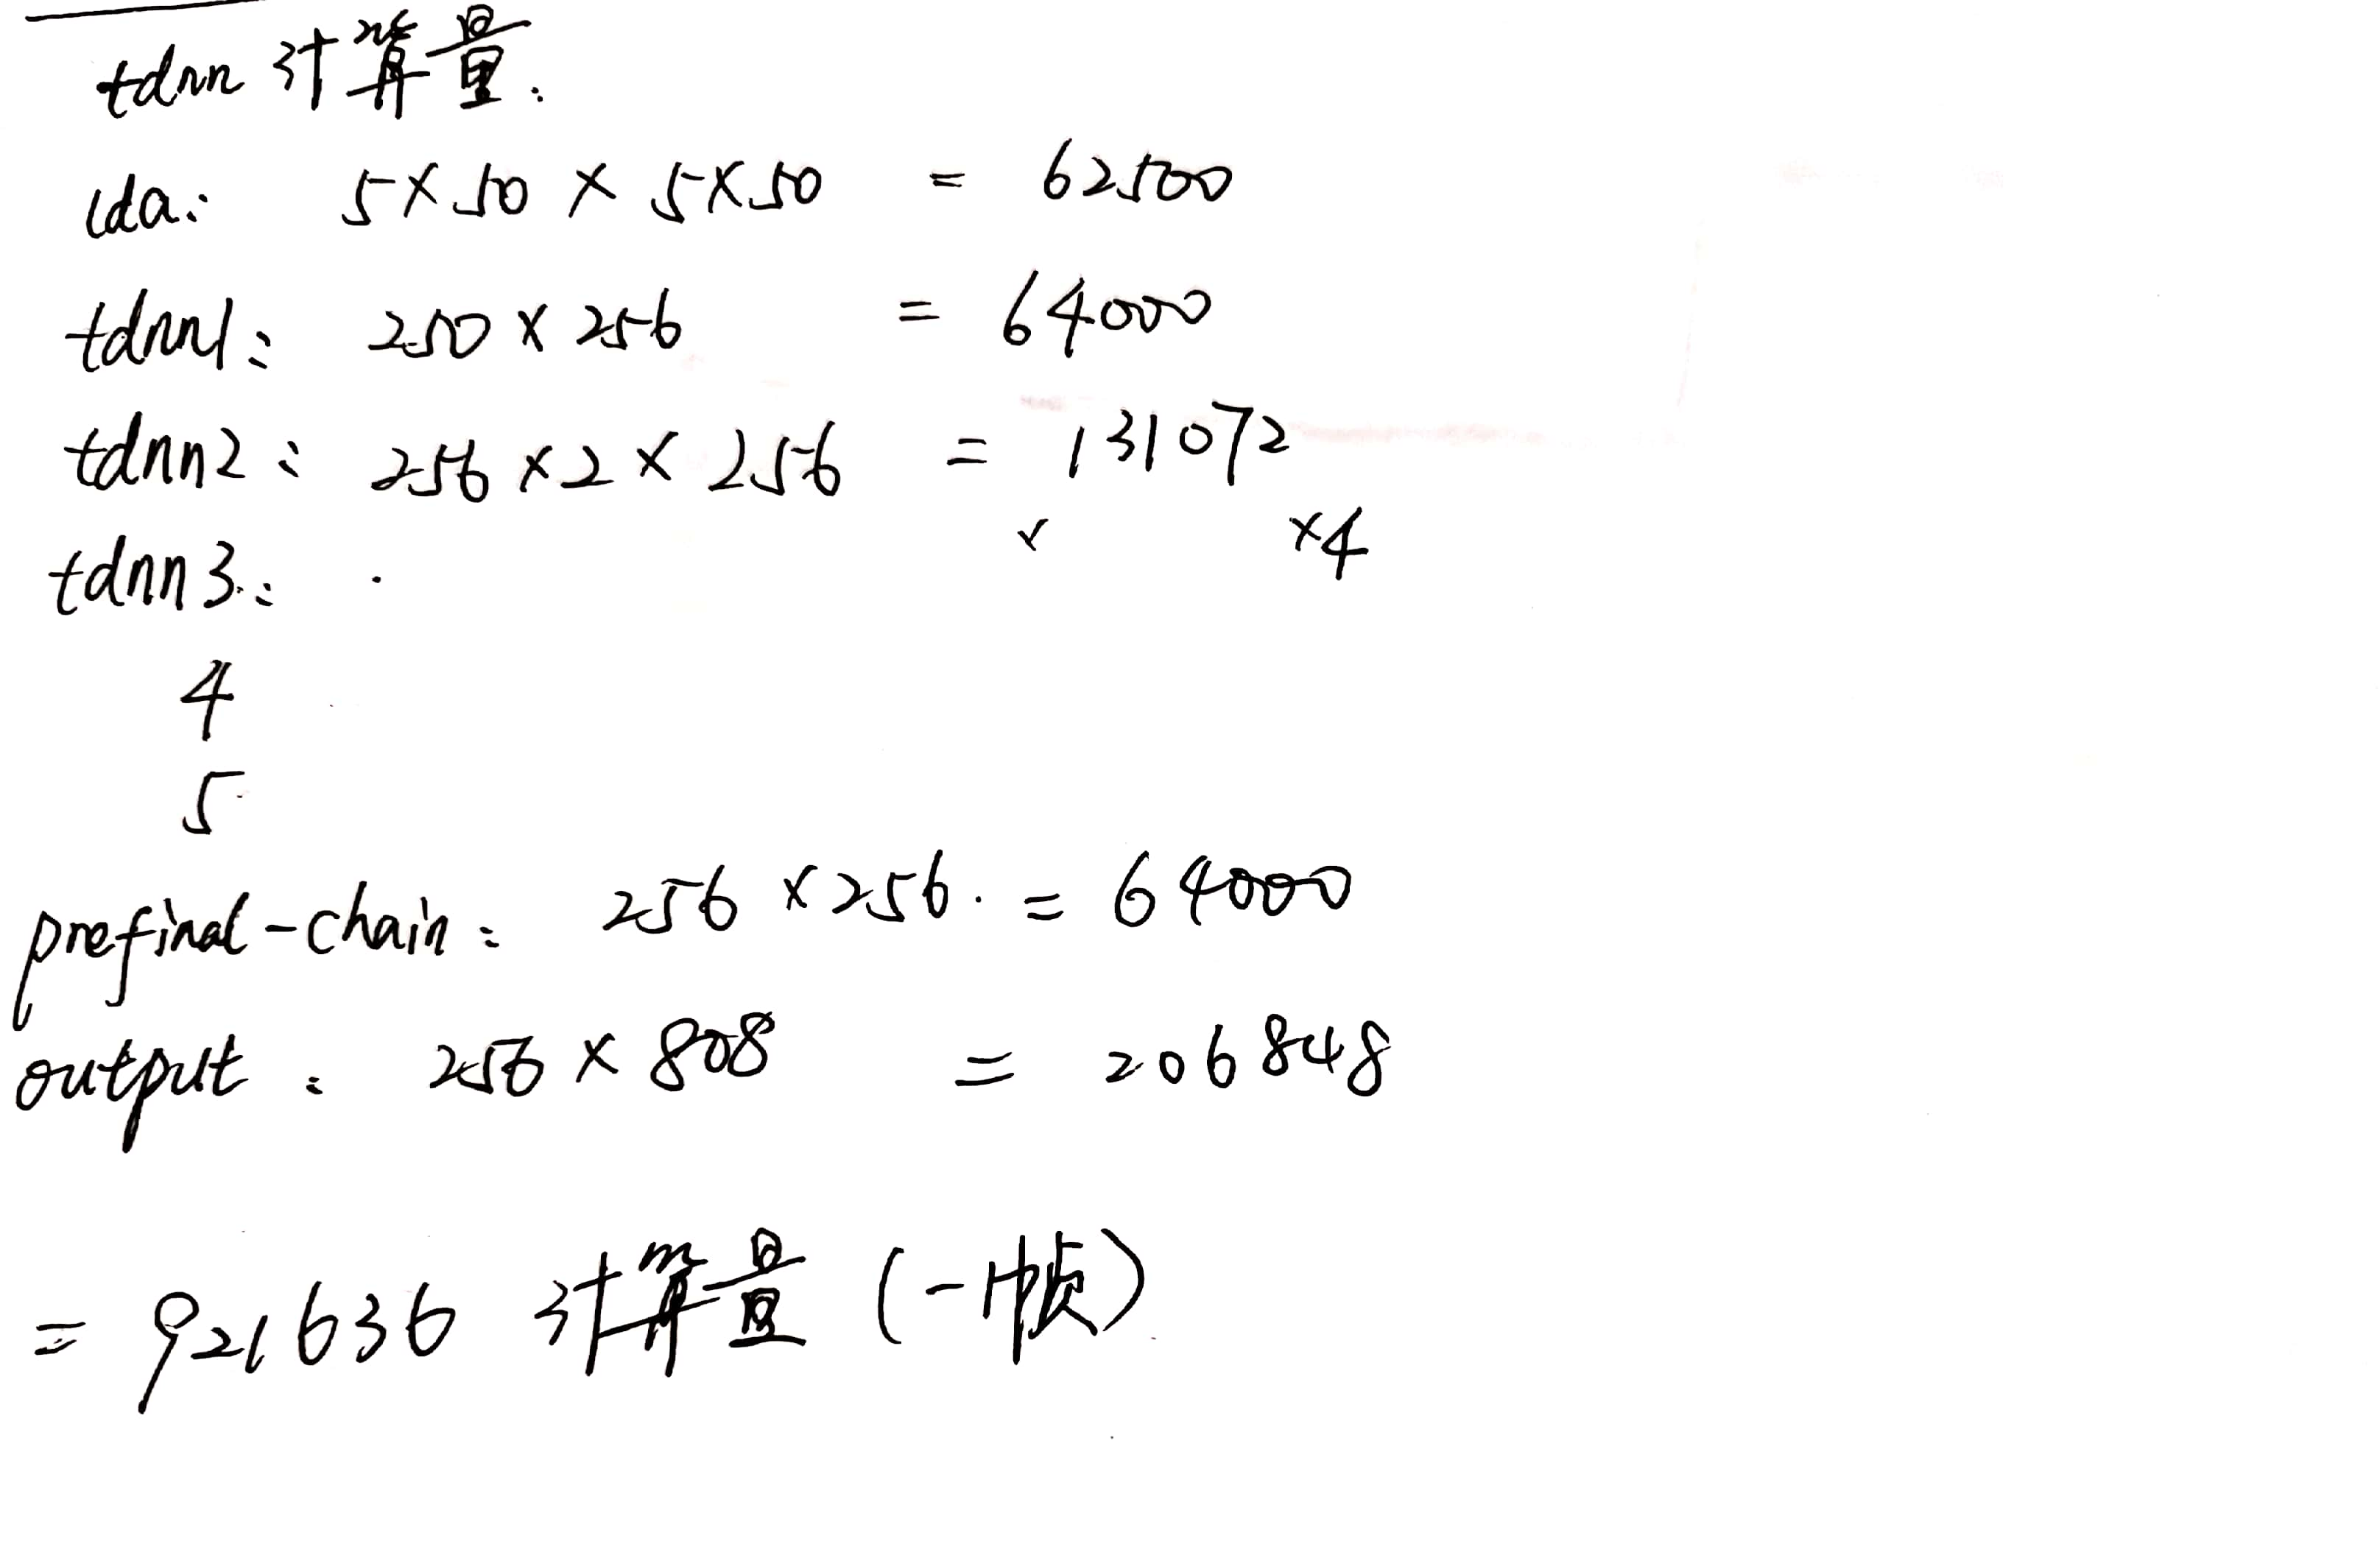 tdnn 计算量:
lda: 5×50 × 5×50 = 62500
tdnn1: 250 × 256 = 64000
tdnn2: 256 ×2 × 256 = 131072
tdnn3: ×4
4
5
prefinal-chain: 256 ×256. = 64000
output: 256 × 808 = 206848
= 921636 计算量 (一帧)